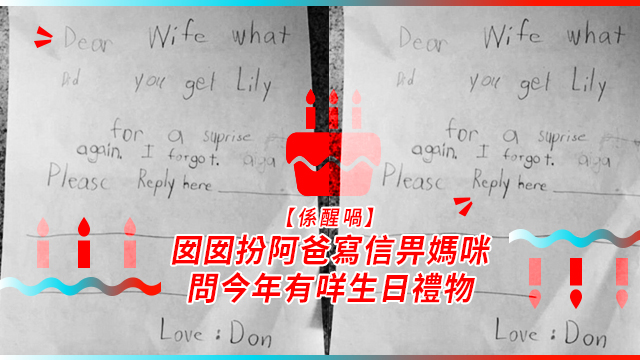 Dear Wife what
Did you get Lily
for a suprise
again. I forgot.
Please Reply here
Love : Don
Dear Wife what
Did you get Lily
for a suprise
again. I forgot.
Please Reply here
Love : Don
【係醒喎】
囡囡扮阿爸寫信畀媽咪
問今年有咩生日禮物